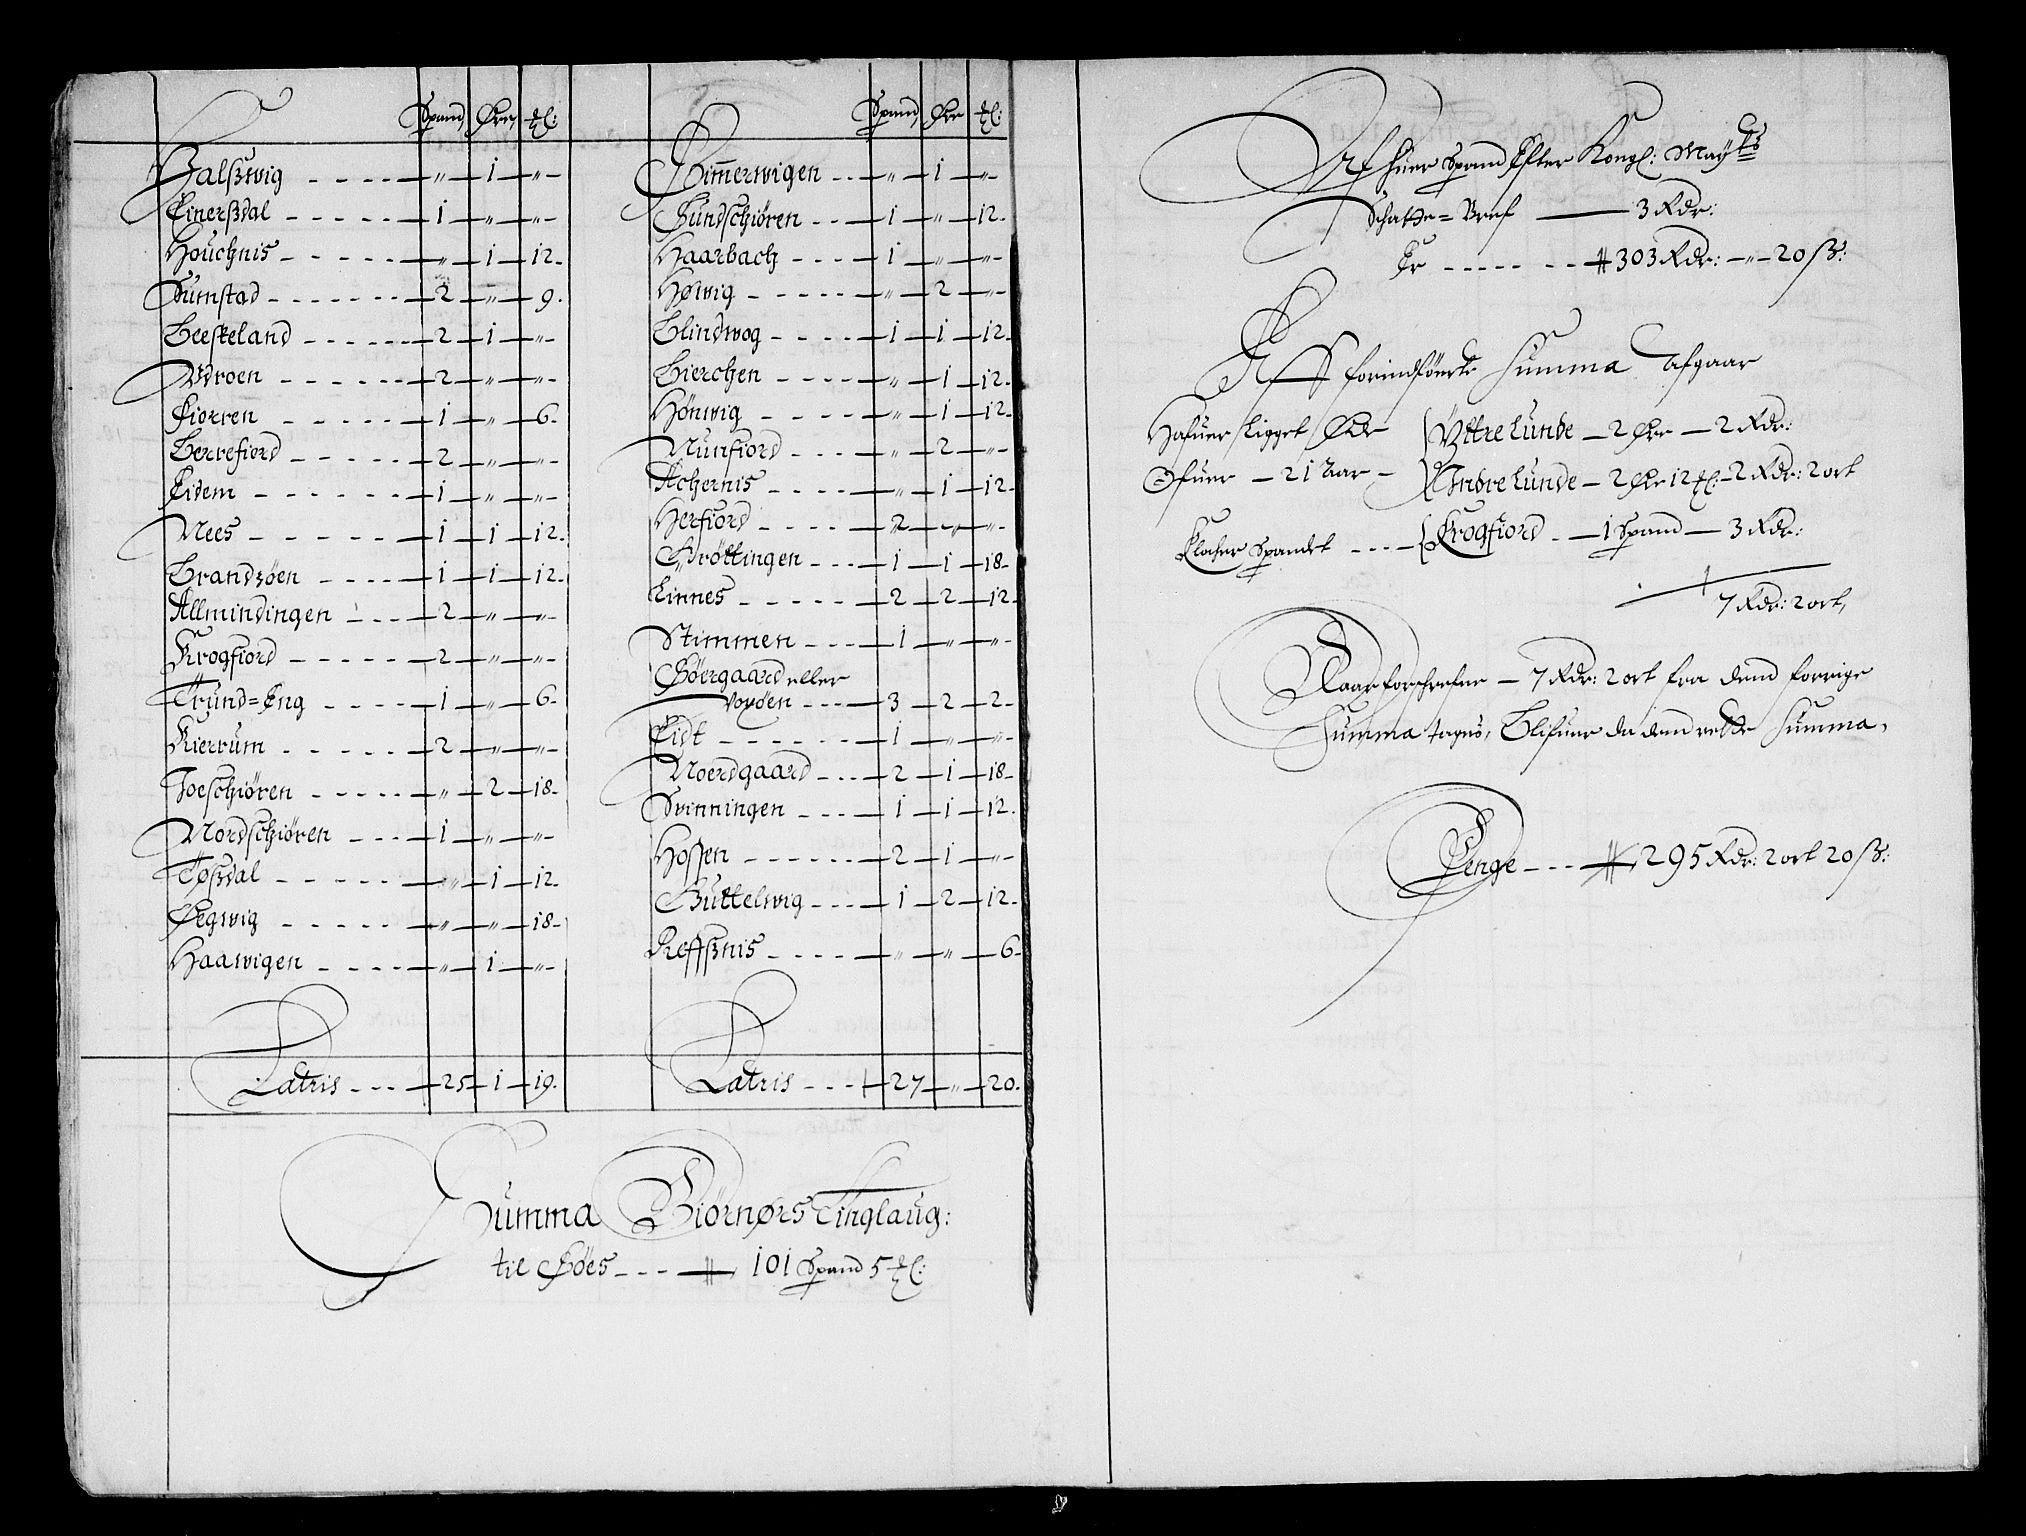 Spand, Øre, ℔:
Halsswig - - - - " 1 "
Einerssdal - - - - 1 " "
Houchnis - - - - " 1 12.
Sumstad - - - - 2 " 9.
Beskeland - - - - 2 1 "
Udroen - - - - 2 " "
Fiorren - - - - 1 " 6.
Berrefiord - - - - 2 " "
Eidem - - - - 1 " "
Nees - - - - 1 1 12.
Brandsöen - - - - 1 1 12
Allmindingen - - - 2 " "
Krogfiord - - - - 2 " "
Trund=Eng - - - - 1 " 6.
Kierrum - - - - 2 " "
Joeschiören - - - - " 2 18.
Nordschiören - - - 1 " "
Tøssdal - - - - " 1 12.
Øegwig - - - - " " 18.
Haawigen - - - - " 1 "
Latris - - - 25 1 19.
Spand, Øre ℔:
Kimmerwigen - - - " 1 "
Sundschiören - - - 1 " 12.
Haarbach - - - - 1 " "
Høwig - - - - " 2 "
Blindwog - - - - 1 1 12.
Bierchen - - - - " 1 12.
Hönwig - - - - " 1 12.
Nunfiord - - - - " 2 "
Achernis - - - - " 1 12.
Herfiord - - - - 2 " "
Gröttingen - - - 1 1 18.
Linnes - - - - 2 2 12.
Stimmen - - - - 1 " "
Böergaard eller
Voxöen - - - 3 2 2.
Eidt - - - - 1 " "
Noerdgaard - - - 2 1 18.
Svinningen - - - 1 1 12.
Hoffen - - - - 2 1 "
Guttelwig - - - 1 2 12.
Reffssnis - - - - " " 6.
Latris - - - 27 " 20.
Summa Biørnørs Tinglaug:
til Böes - - - 101 Spand 5 ℔:
Af huer Spand Efter Kongl: May:ts
Schatte=Bref — 3 Rdr:
Er - - - - - 303 Rdr: " 20 ß:
Aff forindförte Summa Afgaar
Hafuer Ligget Øde Yttre Lunde — 2 Øre — 2 Rdr:
Ofuer — 21 Aar — Indre Lunde — 2 Øre 12 ℔: — 2 Rdr: 2 ort
Klocher Spandet - - - Krogfiord - — 1 Spand — 3 Rdr:
7 Rdr: 2 ort,
Naar forschrefne — 7 Rdr: 2 ort fra dend forrige
Summa tages, Blifuer da dend rette Summa,
Penge - - - 295 Rdr: 2 ort 20 ß: